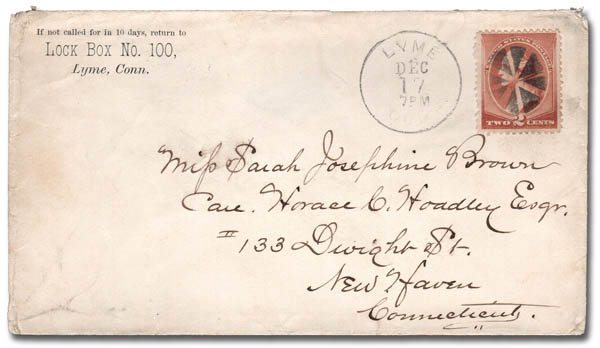 If not called for in 10 days, return to
LOCK BOX NO. 100,
Lyme, Conn.
LYME
DEC
17
7PM
TWO 2 CENTS
Miſs Sarah Josephine Brown
Care. Horace C. Hoadley Esqr.
133 Dwight St.
New Haven
Connecticut.